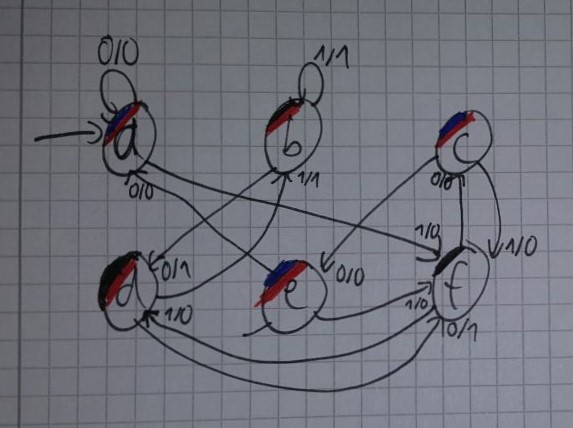 0/0
1/1
a
b
c
0/0
1/1
0/0
1/0
1/0
0/1
0/0
d
e
f
1/0
1/0
0/1